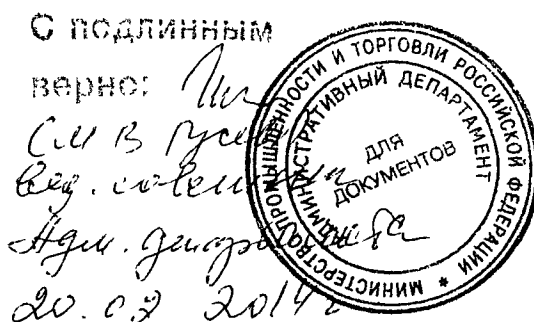 С подлинным
верно:
вед. советник
Адм. департамента
20. 2014г
МИНИСТЕРСТВО ПРОМЫШЛЕННОСТИ И ТОРГОВЛИ РОССИЙСКОЙ ФЕДЕРАЦИИ *
АДМИНИСТРАТИВНЫЙ ДЕПАРТАМЕНТ
ДЛЯ
ДОКУМЕНТОВ